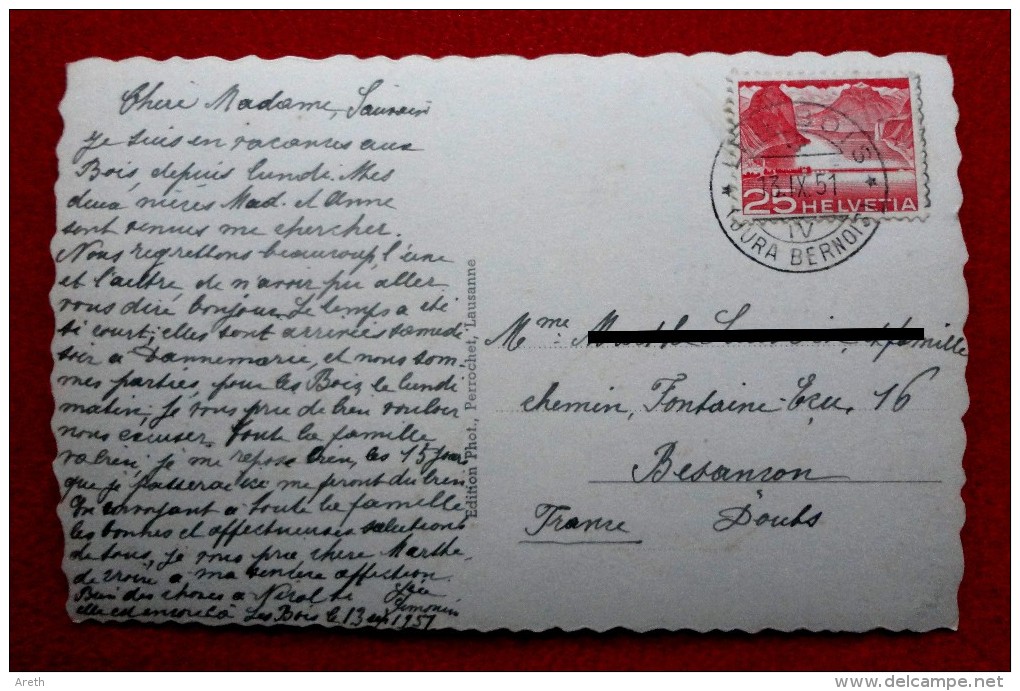 Chère Madame,
Je suis en vacances aux
Bois depuis lundi. Mes
deux nièces Mad. et Anne
sont venues me chercher.
Nous regrettons beaucoup l'une
et l'autre de n'avoir pu aller
vous dire bonjour. Le temps a été
si court; elles sont arrivées samedi
soir à Dannemarie, et nous som-
mes parties, pour les Bois, le lundi
matin, je vous prie de bien vouloir
nous excuser. toute la famille
va bien; je me repose bien, les 15 jours
que je passerai ici me feront du bien
En envoyant à toute la famille
les bonnes et affectueuses salutations
de tous, je vous prie chère Marthe
de croire à ma sincère affection
Bien des choses à
Simonin
Les Bois le 13 1951
Edition Phot., Perrochet, Lausanne
BOIS
13.IX.51
IV
(JURA BERNOIS)
25 HELVETIA
Mme et famille
chemin, Fontaine-Ecu, 16
Besançon
Doubs
France
Areth
http://www.delcampe.net